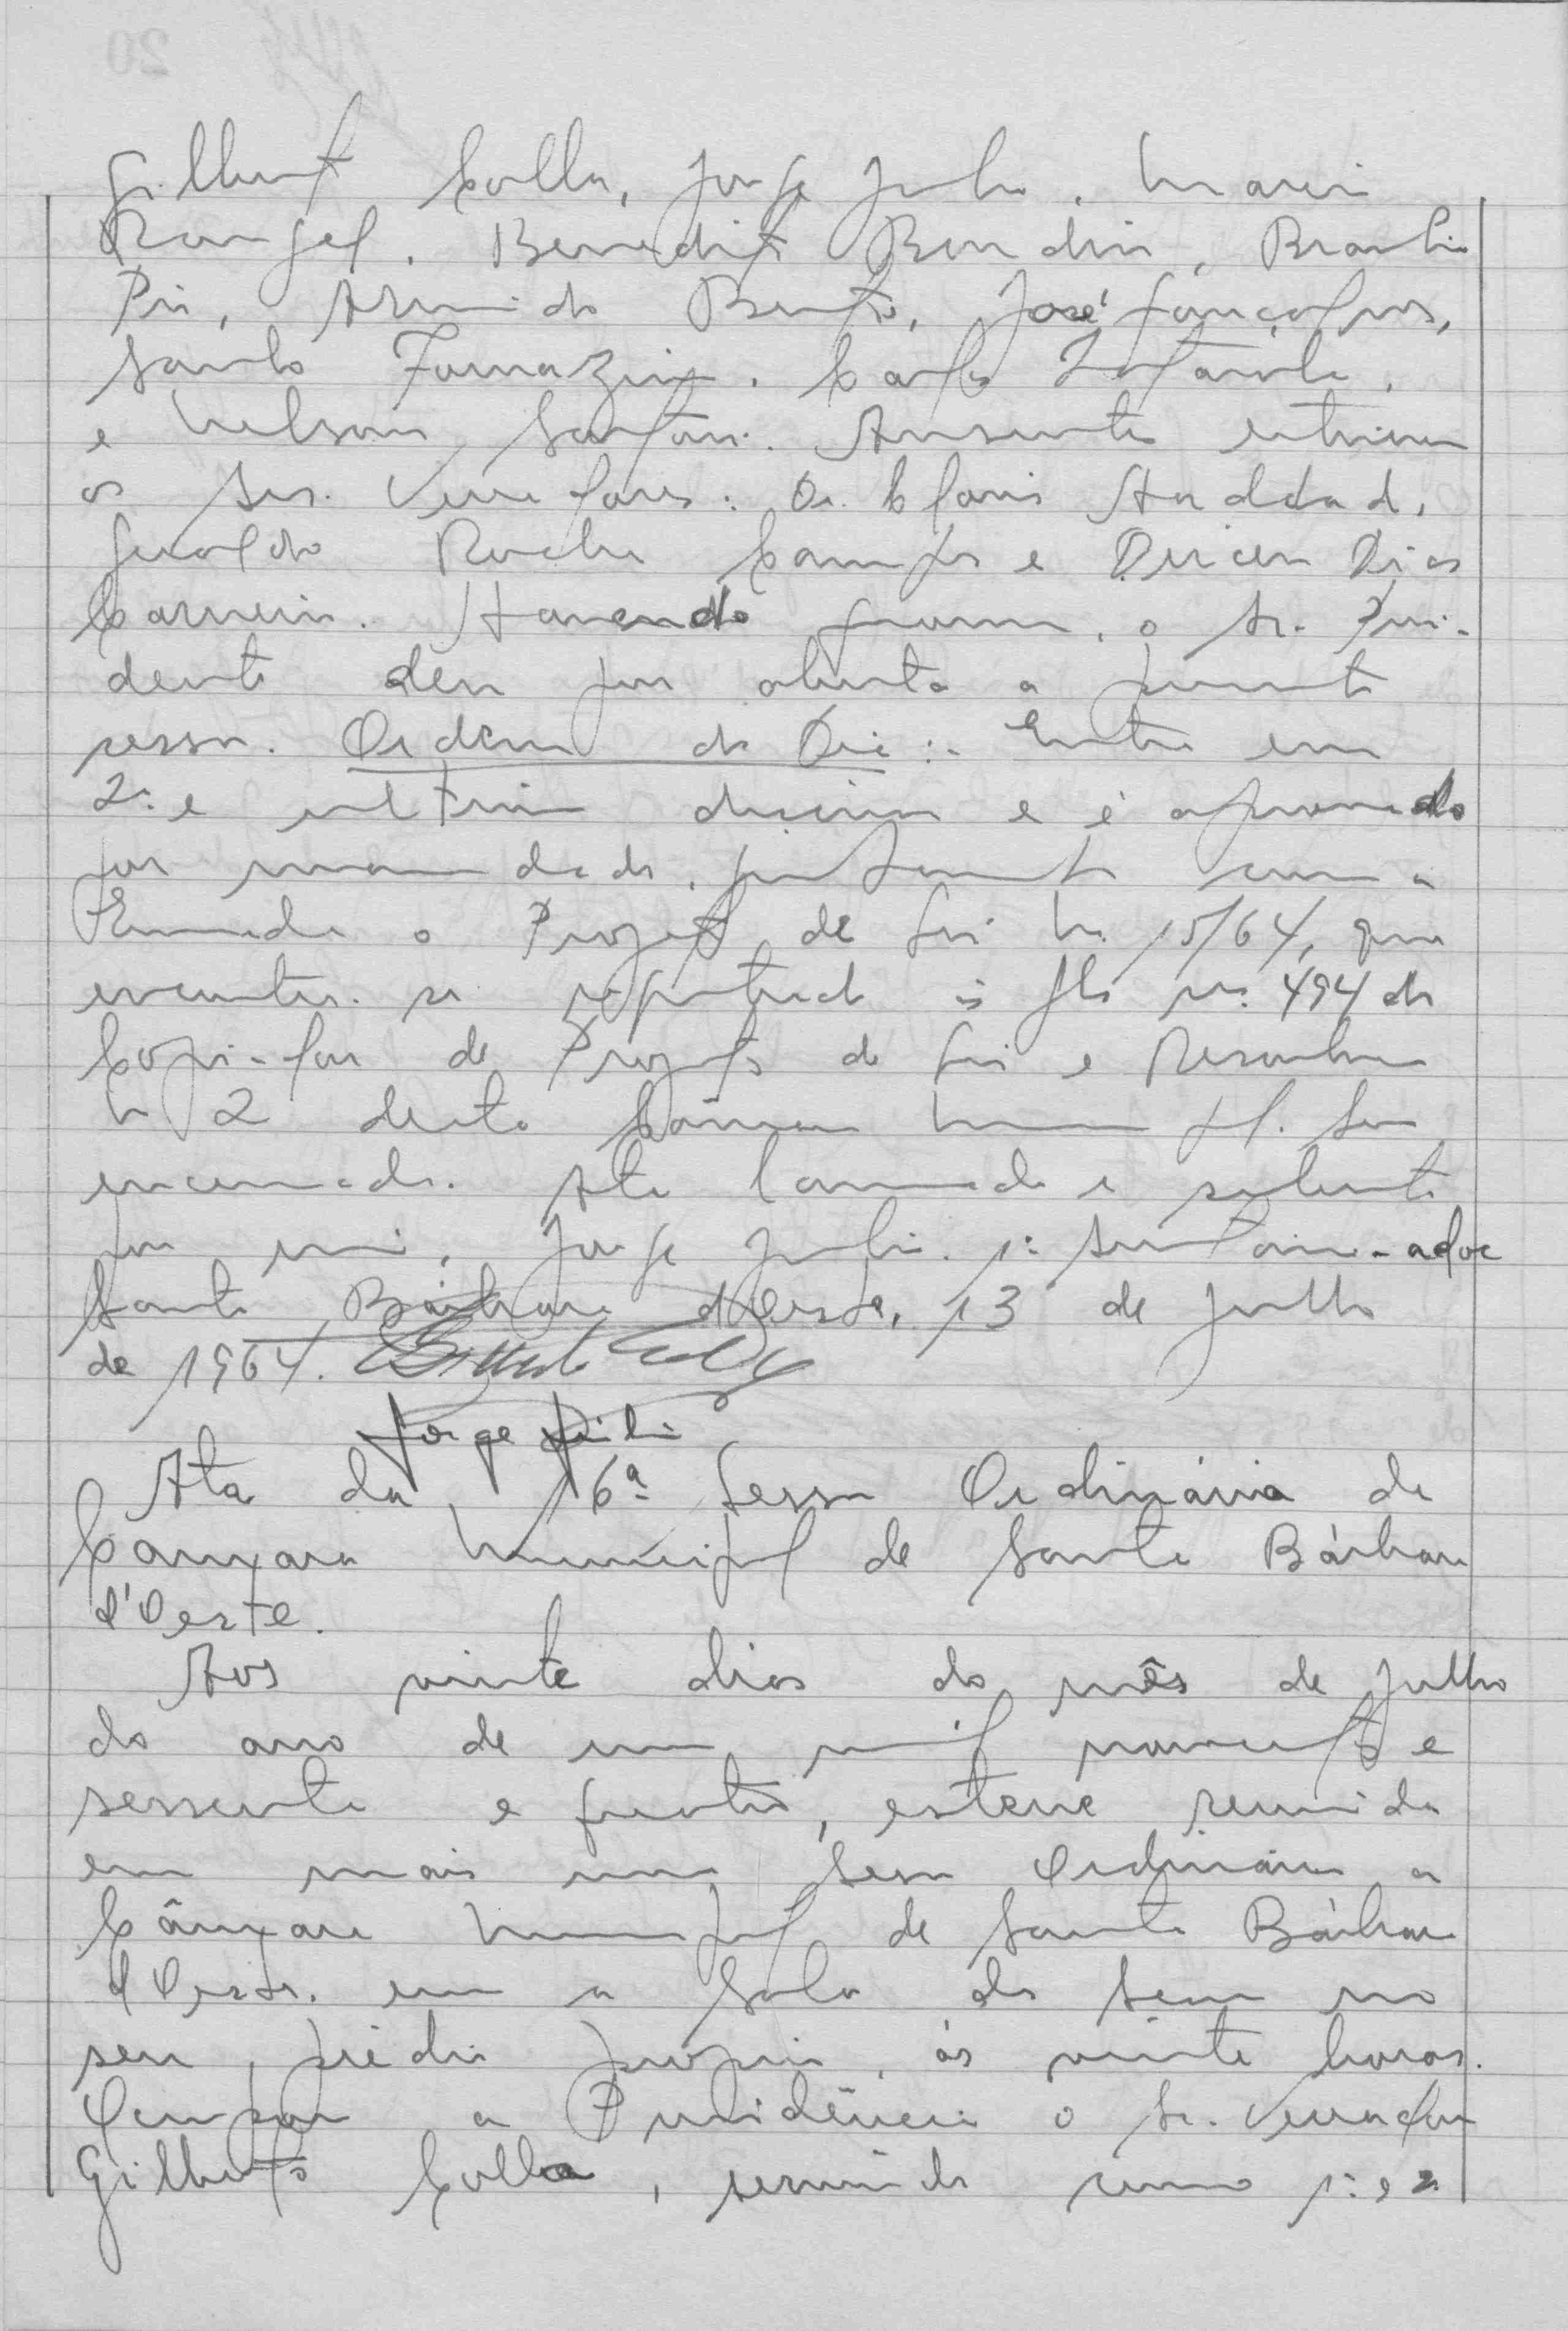 Gilberto Colla, Jorge Julio, Mario
Rangel, Benedito Bondin, Brasilio
Pin, Armindo Bento, José Gonçalves,
Santo Fornazin, Carlos
e Nelson Santani. Ausente estiveram
os Srs. Vereadores: Dr. Clovis Haddad,
Geraldo Rocha Campos e Dirceu Dias
Carneiro. Havendo quorum, o Sr. Presi-
dente deu por aberta a presente
sessão. Ordem do Dia:- Entra em
2ª e ultima discussão e é aprovado
por unanimidade, juntamente com a
Emenda o Projeto de Lei Nº 15/64, que
encontra-se registrado às fls nº 494 do
Copiador de Projetos de Lei e Resoluções
Nº 2 desta Câmara Municipal. Sessão
encerrada. Ata lavrada e subscrita
por mim, Jorge Julio, 1º Secretario-adoc
Santa Bárbara d'Oeste, 13 de Julho
de 1964. Gilberto Colla
Jorge Julio
Ata da 16ª Sessão Ordinária da
Camara Municipal de Santa Bárbara
d'Oeste.
Aos vinte dias do mês de Julho
do ano de um mil novecentos e
sessenta e quatro, esteve reunida
em mais uma Sessão Ordinária a
Câmara Municipal de Santa Bárbara
d'Oeste, em a Sala das Sessões no
seu prédio proprio, ás vinte horas.
Ocupou a Presidência o Sr. Vereador
Gilberto Colla, servindo como 1º e 2º